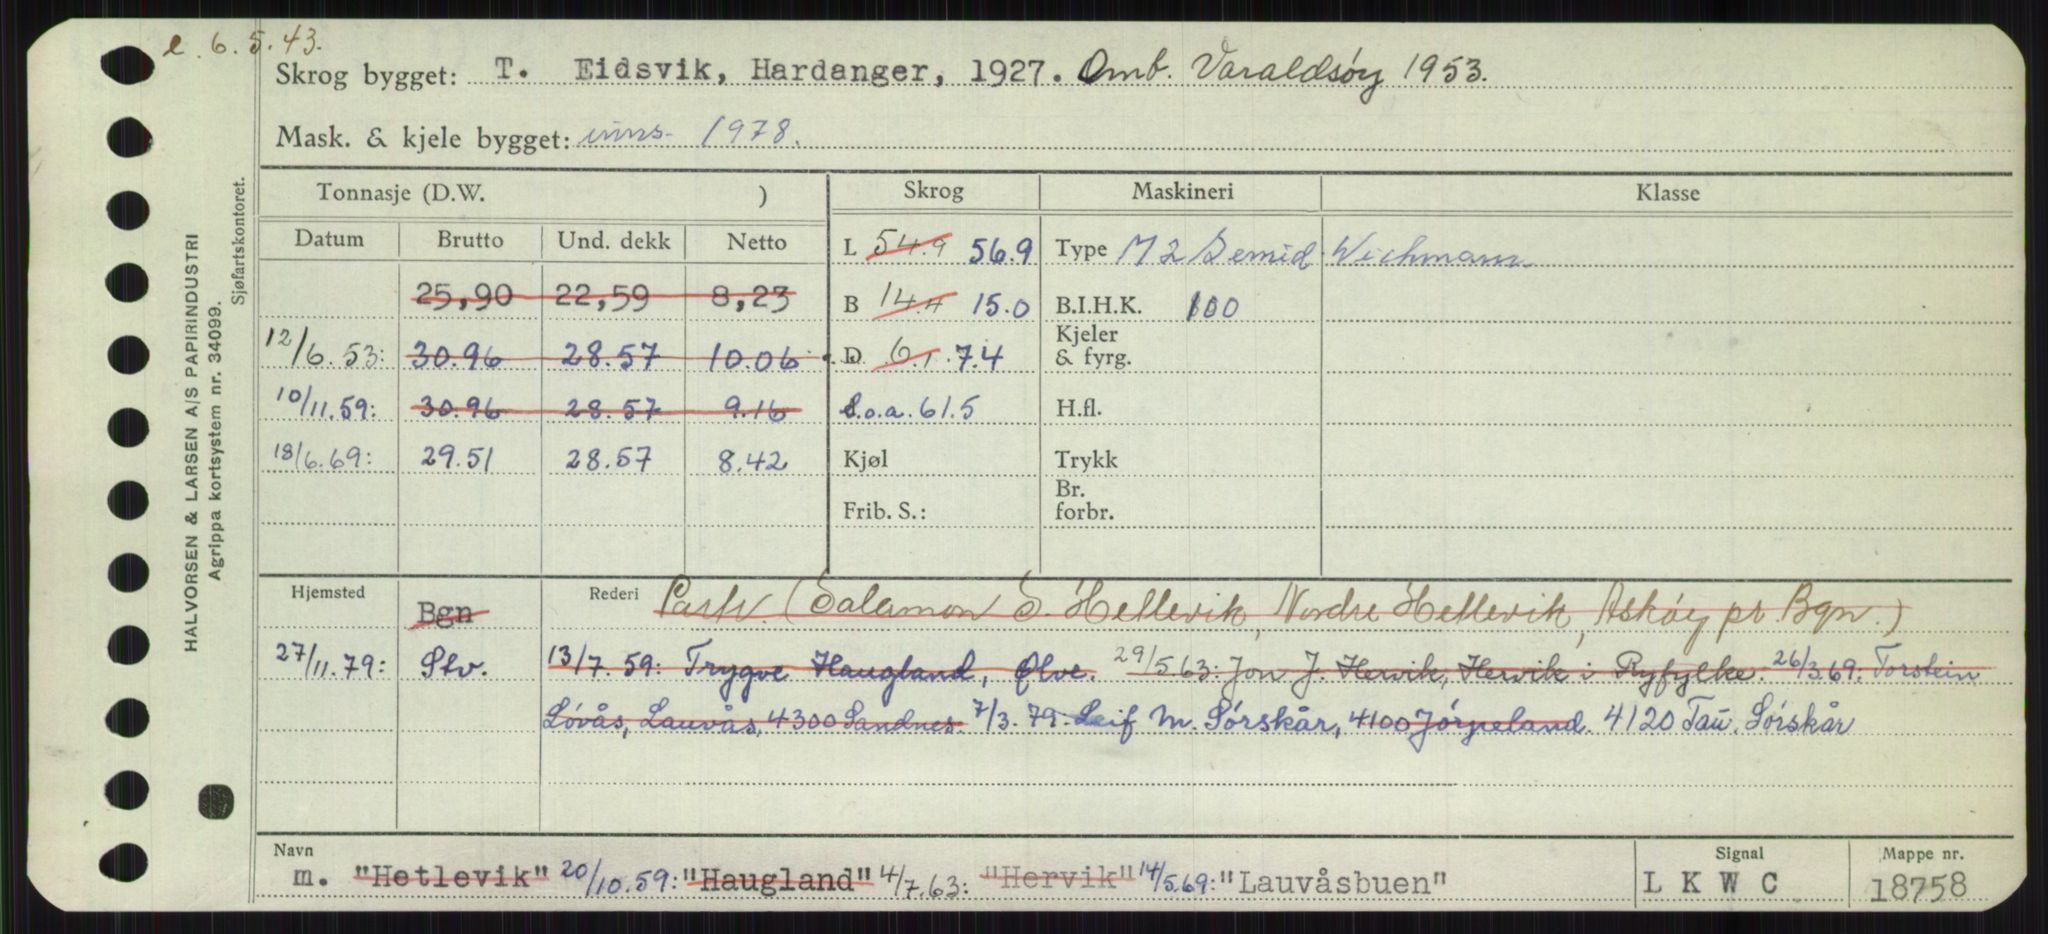 e. 6.5.43.
Skrog bygget: T. Eidsvik, Hardanger, 1927. Omb. Varaldsöy 1953.
Mask. & kjele bygget: inns. 1978.
HALVORSEN & LARSEN A/S PAPIRINDUSTRI
Agrippa kortsystem nr. 34099.
Sjøfartskontoret.
Tonnasje (D.W. ) Skrog Maskineri Klasse
Datum Brutto Und. dekk Netto L 54.9 56.9 Type M 2 Semid. Wichmann
25,90 22,59 8,23 B 14.4 15.0 B.I.H.K. 100
12/6.53: 30.96 28.57 10.06 D 6.1 7.4 Kjeler & fyrg.
10/11.59: 30.96 28.57 9.16 l.o.a. 61.5 H.fl.
18/6.69: 29.51 28.57 8.42 Kjøl Trykk
Frib. S.: Br. forbr.
Hjemsted Bgn Rederi Partr. (Salamon S. Hetlevik, Nordre Hetlevik, Askøy pr. Bgn.)
27/11.79: Stv. 13/7.59: Trygve Haugland, Ølve. 29/5.63: Jon J. Hervik, Hervik i Ryfylke. 26/3.69: Torstein
Lövås, Lauvås, 4300 Sandnes. 7/3.79: Leif M. Sörskår, 4100 Jörpeland. 4120 Tau. Sörskår
Navn Signal Mappe nr.
m. "Hetlevik" 20/10.59: "Haugland" 4/7.63: "Hervik" 14/5.69: "Lauvåsbuen" L K W C 18758